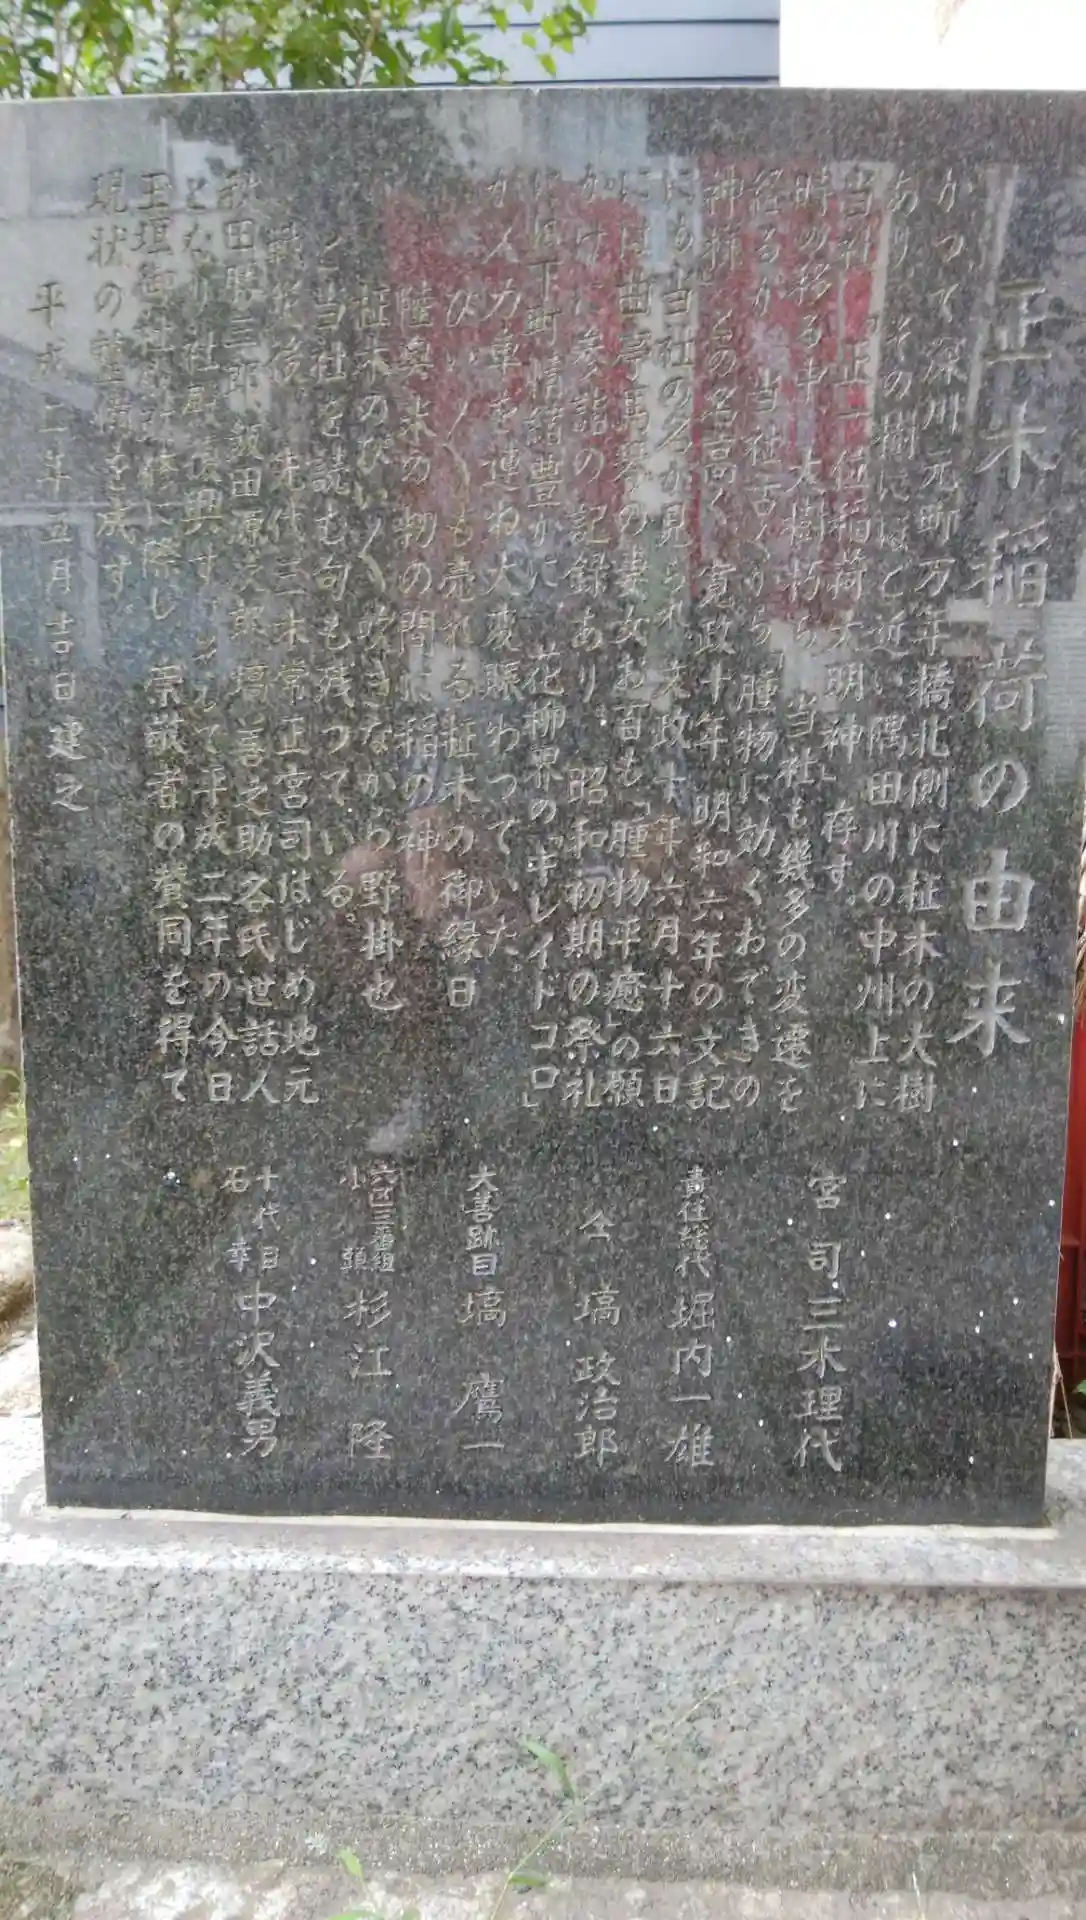 正木稲荷の由来
かつて深川元町万年橋北側に柾木の大樹
あり、その樹にほど近い隅田川の中州上に
当社「正一位稲荷大明神」存す。
時の移る中、大樹朽ち、当社も幾多の変遷を
経るが、当社古くから「腫物に効くおできの
神様」との名高く、寛政十年、明和六年の文記
にも当社の名が見られ、文政十年六月十六日
には曲亭馬琴の妻女お百も「腫物平癒」の願
かけに参詣の記録あり。昭和初期の祭礼
には下町情緒豊かに、花柳界の「キレイドコロ」
が人力車を連ね大変賑わっていた。
びい〱も売れる柾木の御縁日
陸奥末カ物の間に稲の神
柾木のびい〱吹きながら野掛也
と当社を読む句も残っている。
戦災後、先代三木常正宮司はじめ地元
秋田勝三郎、飯田源次郎、塙善之助各氏世話人
となり社殿復興す。そして平成二年の今日
玉垣御社改修に際し、崇敬者の賛同を得て
現状の整備を成す
平成二年五月吉日建之
宮司 三木理代
責任総代 堀内一雄
仝 塙 政治郎
大善跡目 塙 鷹一
六区三番組 小頭 杉江 隆
十代目 石幸 中沢義男